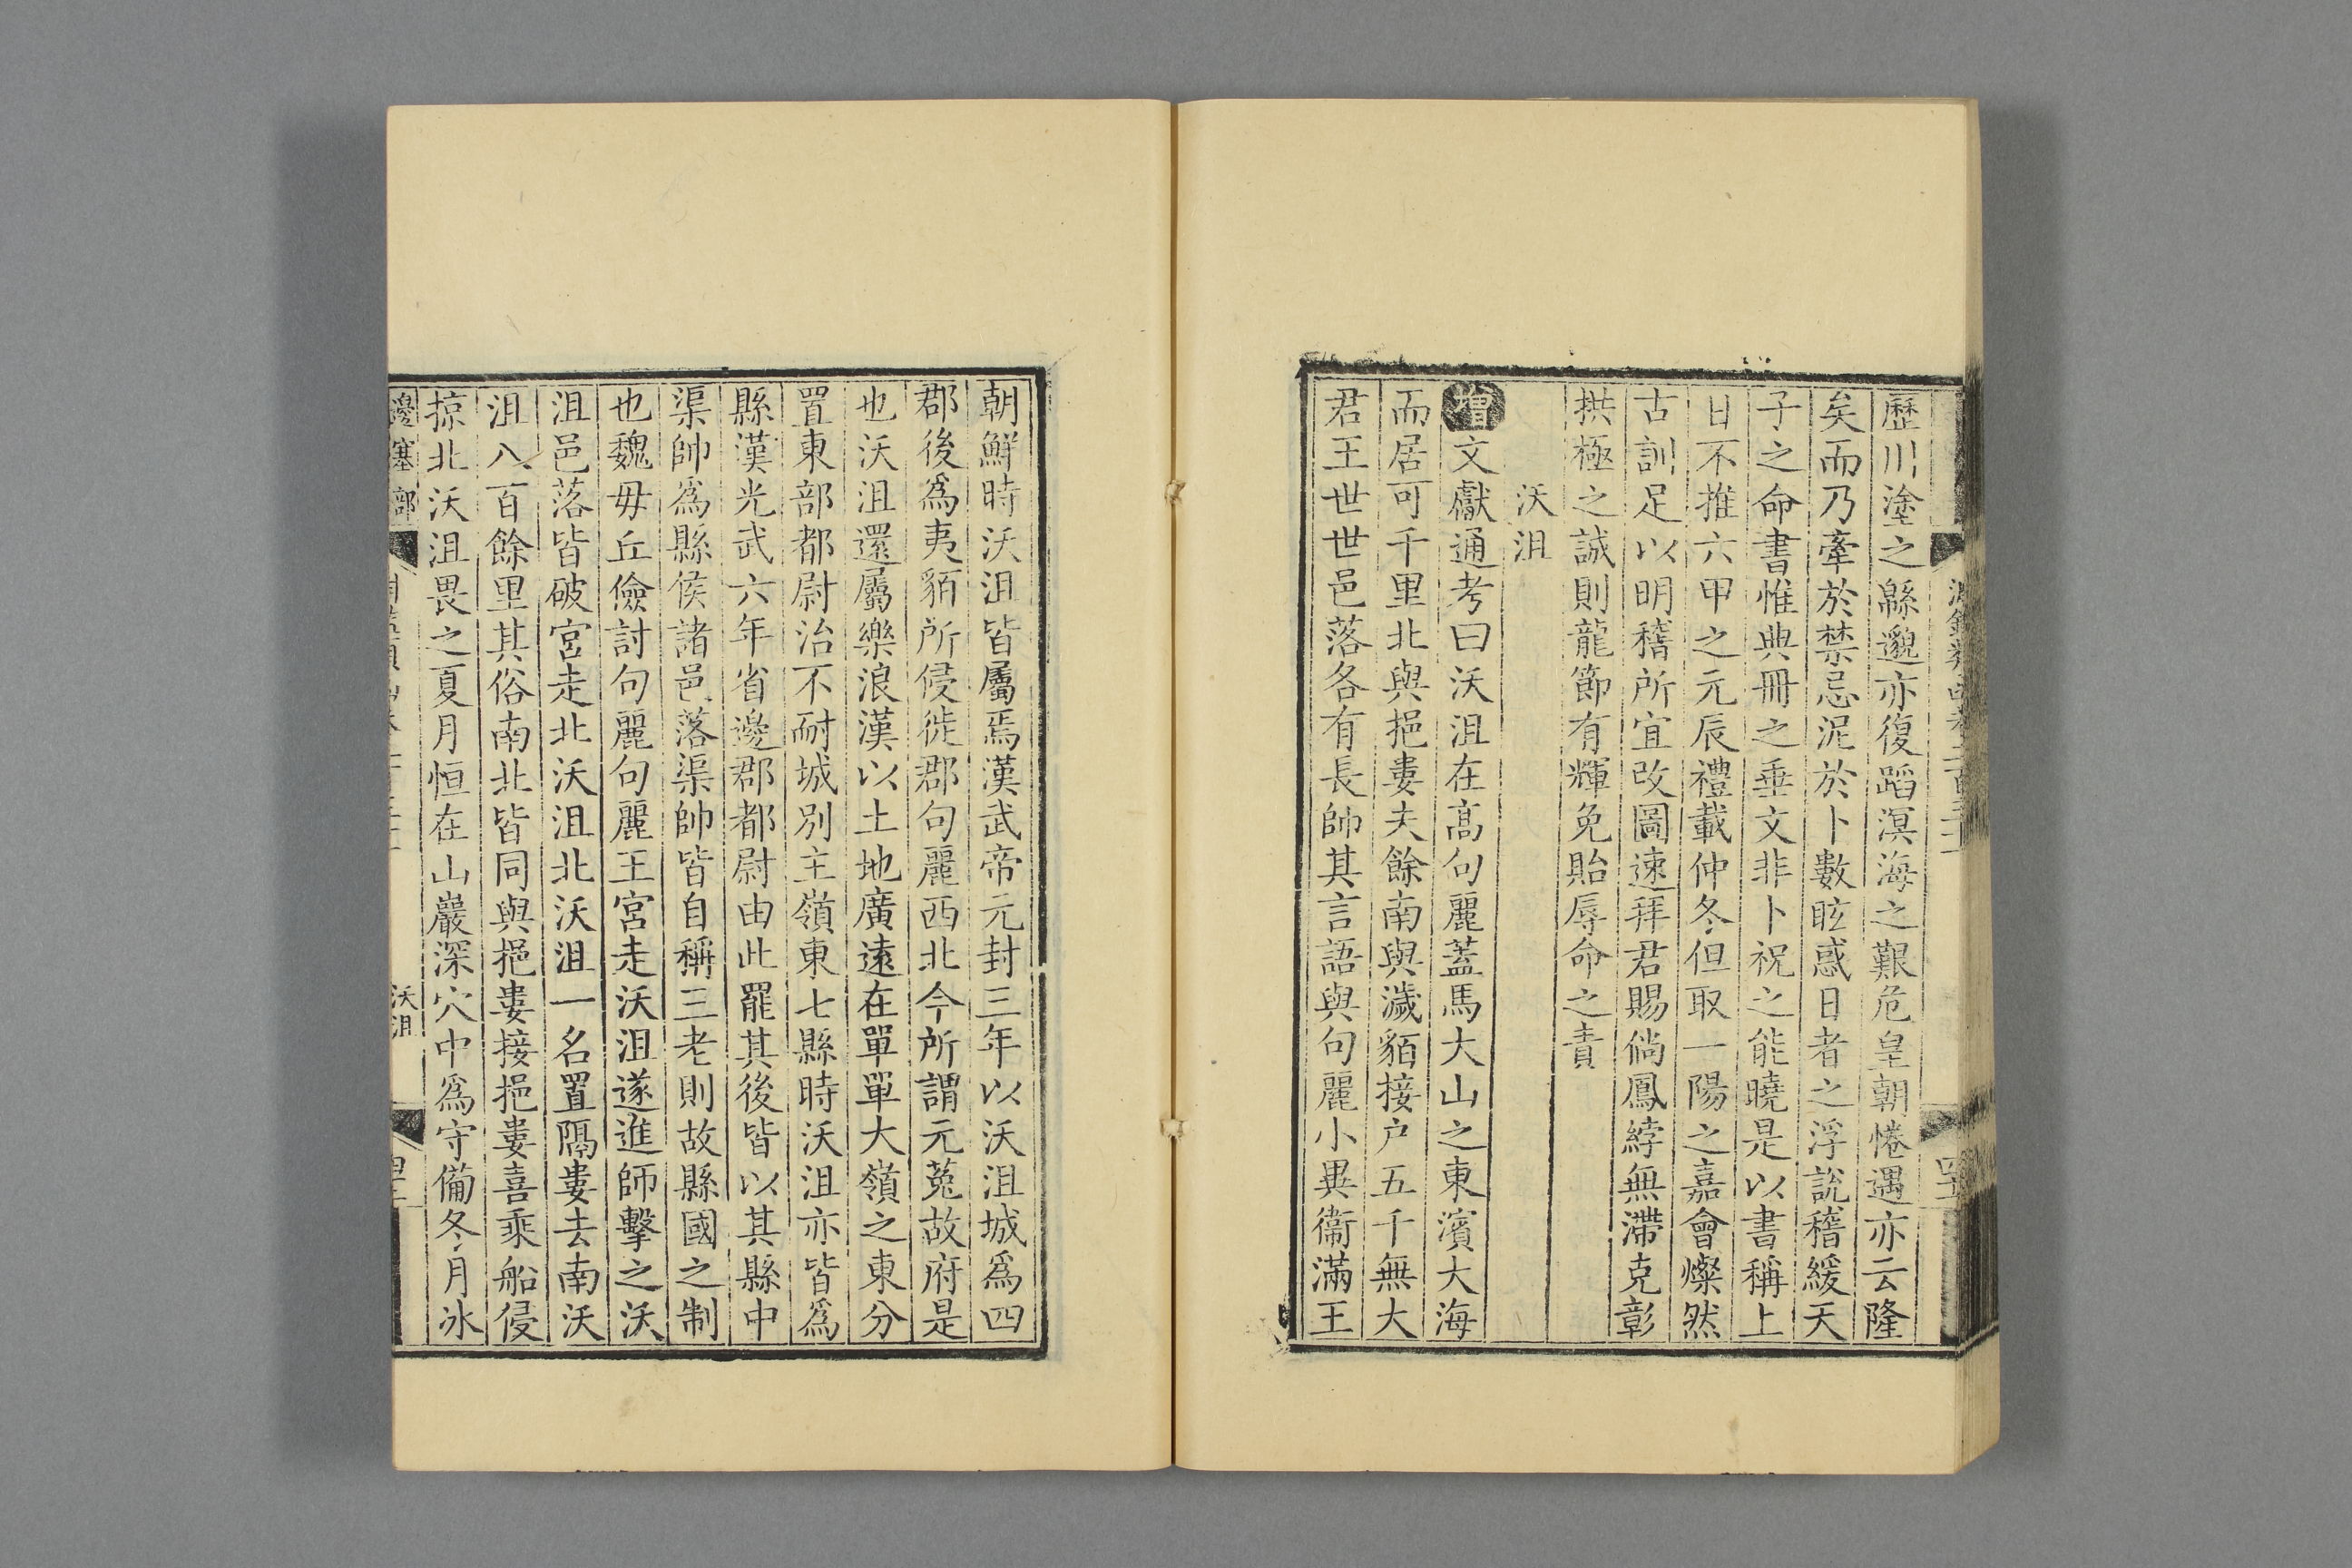 歷川塗之緜邈亦復蹈溟海之艱危皇朝惓遇亦云隆
矣而乃牽於禁忌泥於卜數眩惑日者之浮說稽緩天
子之命書惟典冊之垂文非卜祝之能曉是以書稱上
日不推六甲之元辰禮載仲冬但取一陽之嘉會燦然
古訓足以明稽所宜改圖速拜君賜倘鳳綍無滯克彰
拱極之誠則龍節有輝免貽辱命之責
沃沮
增文獻通考曰沃沮在高句麗蓋馬大山之東濱大海
而居可千里北與挹婁夫餘南與濊貊接户五千無大
君王世世邑落各有長帥其言語與句麗小異衞滿王
朝鮮時沃沮皆屬焉漢武帝元封三年以沃沮城爲四
郡後爲夷貊所侵徙郡句麗西北今所謂元菟故府是
也沃沮還屬樂浪漢以土地廣遠在單單大嶺之東分
置東部都尉治不耐城別主嶺東七縣時沃沮亦皆爲
縣漢光武六年省邊郡都尉由此罷其後皆以其縣中
渠帥爲縣侯諸邑落渠帥皆自稱三老則故縣國之制
也魏毋丘儉討句麗句麗王宮走沃沮遂進師擊之沃
沮邑落皆破宮走北沃沮北沃沮一名置隔婁去南沃
沮八百餘里其俗南北皆同與挹婁接挹婁喜乘船侵
掠北沃沮畏之夏月恒在山巖深穴中爲守備冬月冰
邊塞部
沃沮